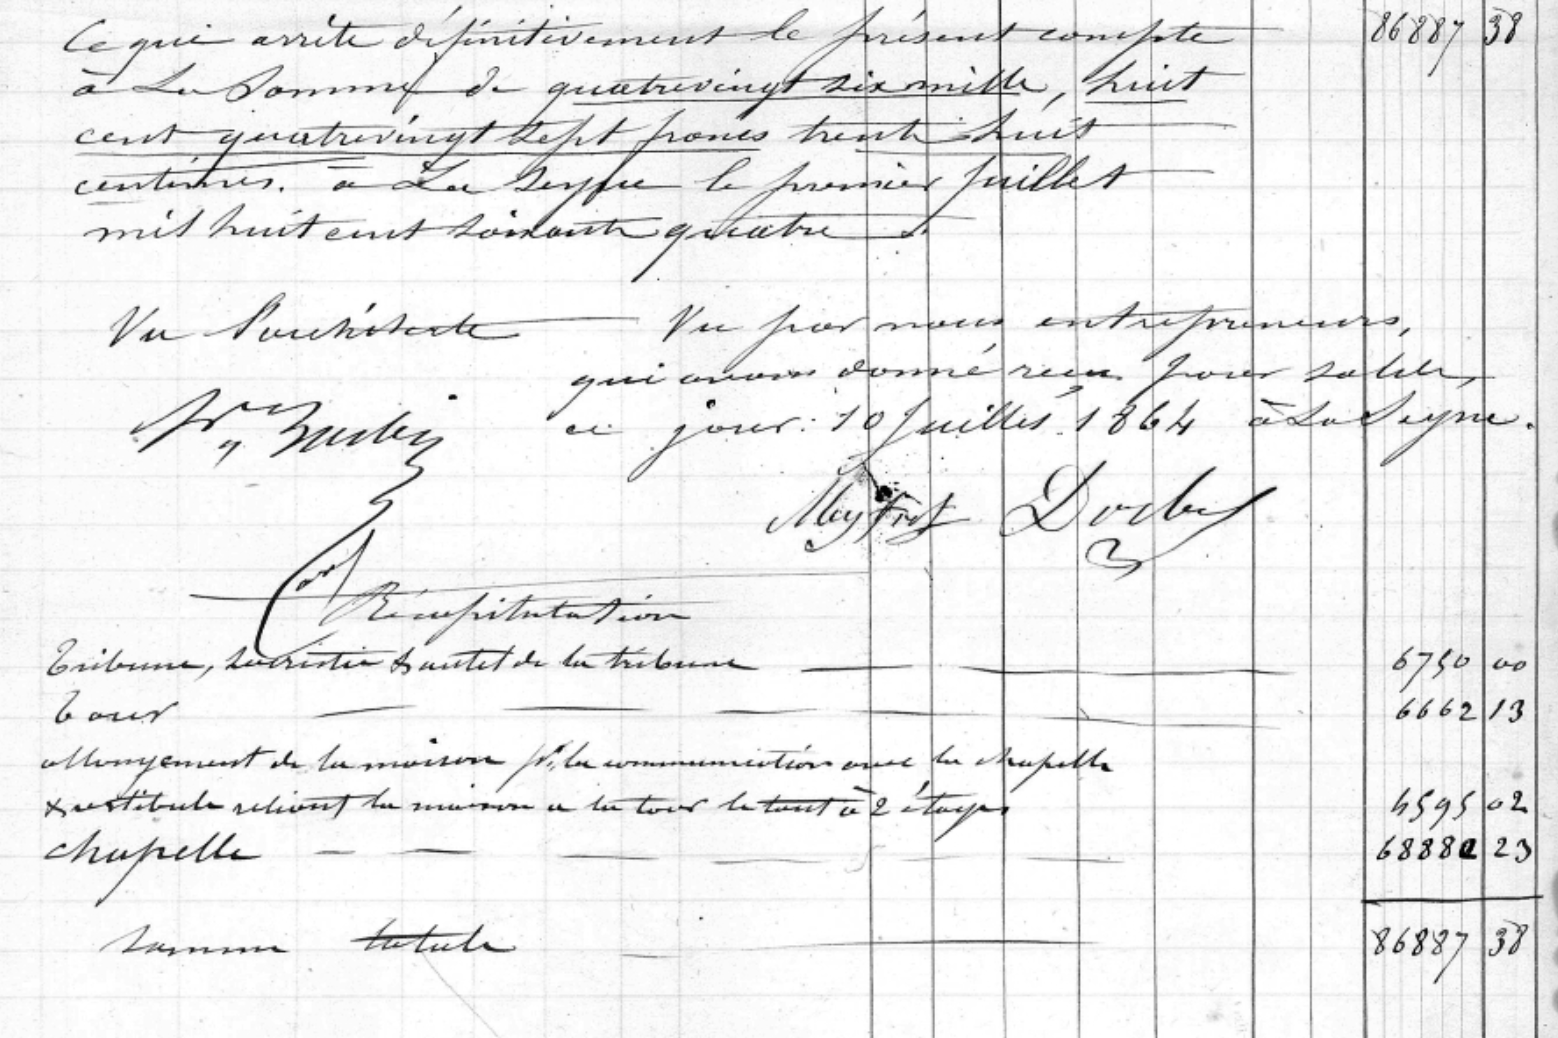 Ce qui arrête définitivement le présent compte 86887 38
à La Somme de quatrevingt six mille, huit
cent quatrevingt sept francs trente huit
centimes. à La Seyne le premier juillet
mil huit cent soixante quatre.
Vu l'architecte Vu par nous entrepreneurs,
qui avons donné recu pour solde,
ce jour: 10 Juillet 1864 à La Seyne.
Récapitulation
Tribune, sacristie & autel de la tribune 6750 00
Tour 6662 13
allongement de la maison pr. la communication avec la chapelle
& vestibule reliant la maison a la tour le tout à 2 étages 4595 02
Chapelle 68880 23
somme totale 86887 38